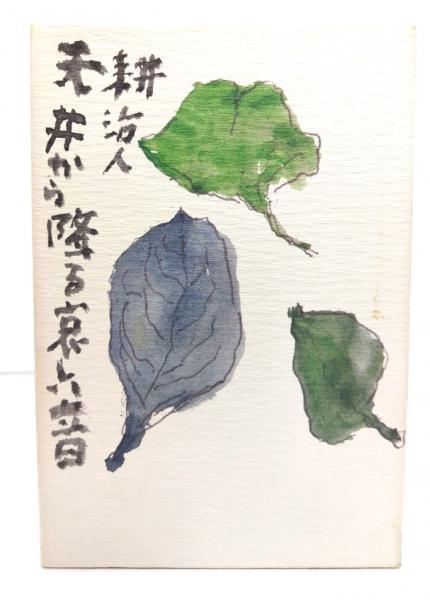 耕治人
天井から降る哀しい音